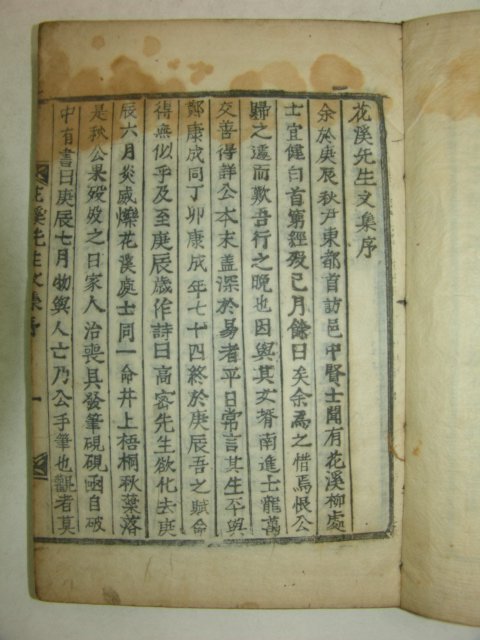 花溪先生文集序
余於庚辰秋尹東都首訪邑中賢士聞有花溪柳處
士宜健白首窮經歿已月餘日矣余爲之惜焉恨公
歸之遽而歎吾行之晩也因與其女壻南進士龍萬
交善得詳公本末盖深於易者平日常言其生平與
鄭康成同丁卯康成年七十四終於庚辰吾之賦命
得無似乎及至庚辰歲作詩曰高密先生欲化去庚
辰六月炎威爍花溪處士同一命井上梧桐秋葉落
是秋公果歿歿之日家人治喪具發筆硯硯凾自破
中有書曰庚辰七月物與人亡乃公手筆也觀者莫
花溪先生文集序 一